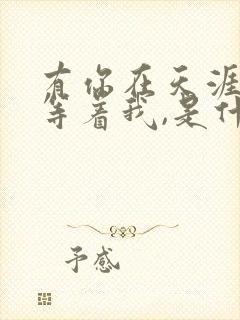 有你在天涯
等着我,是什
予感